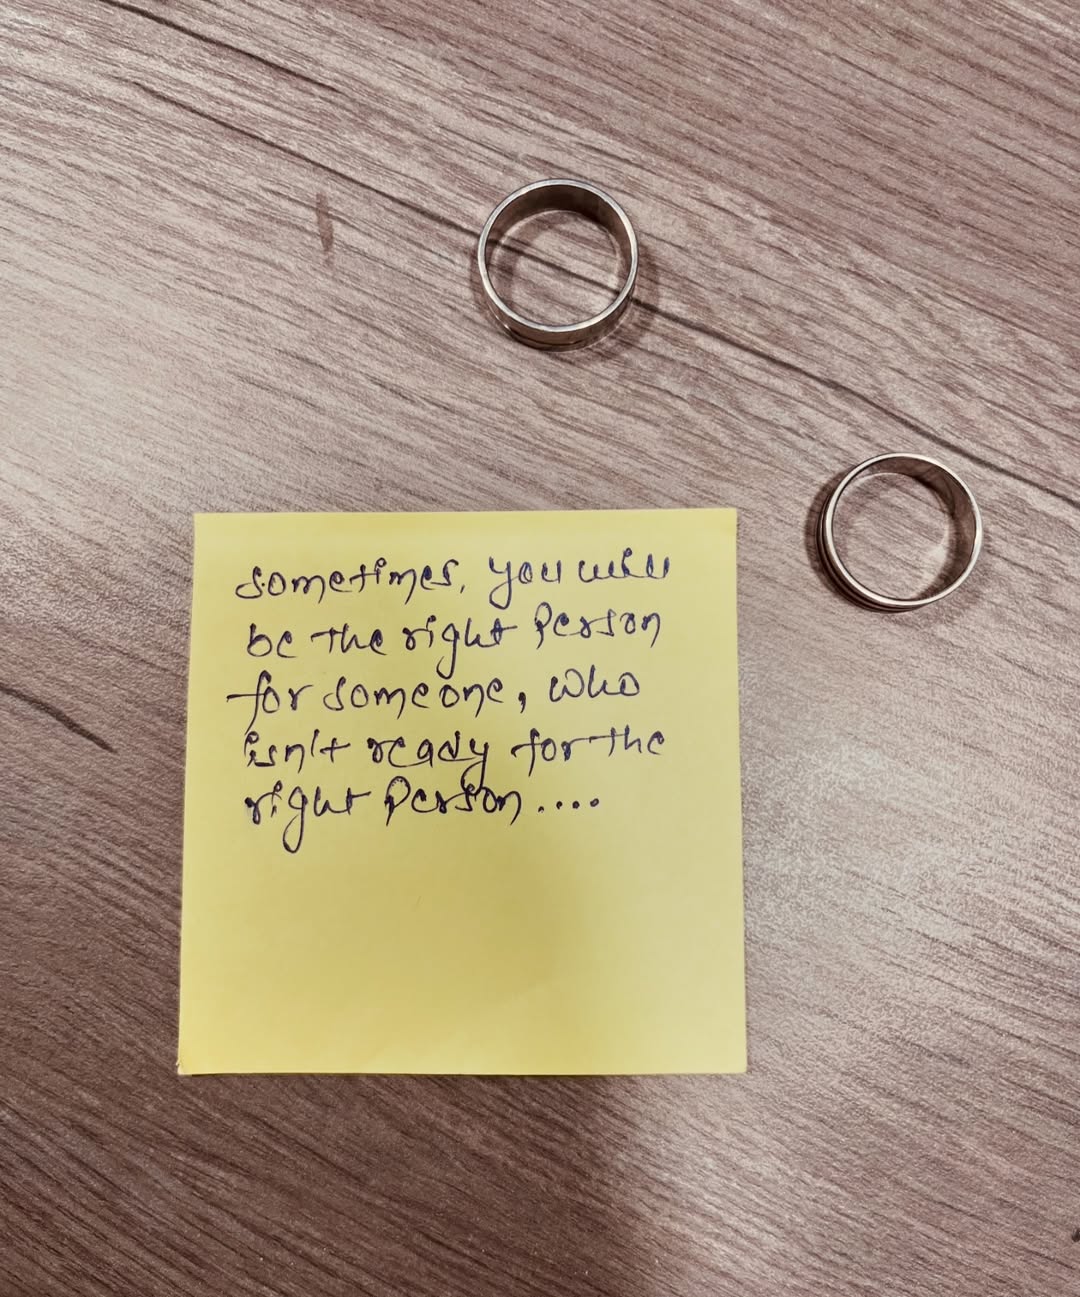 sometimes, you will
be the right Person
for someone, who
isn't ready for the
right Person....